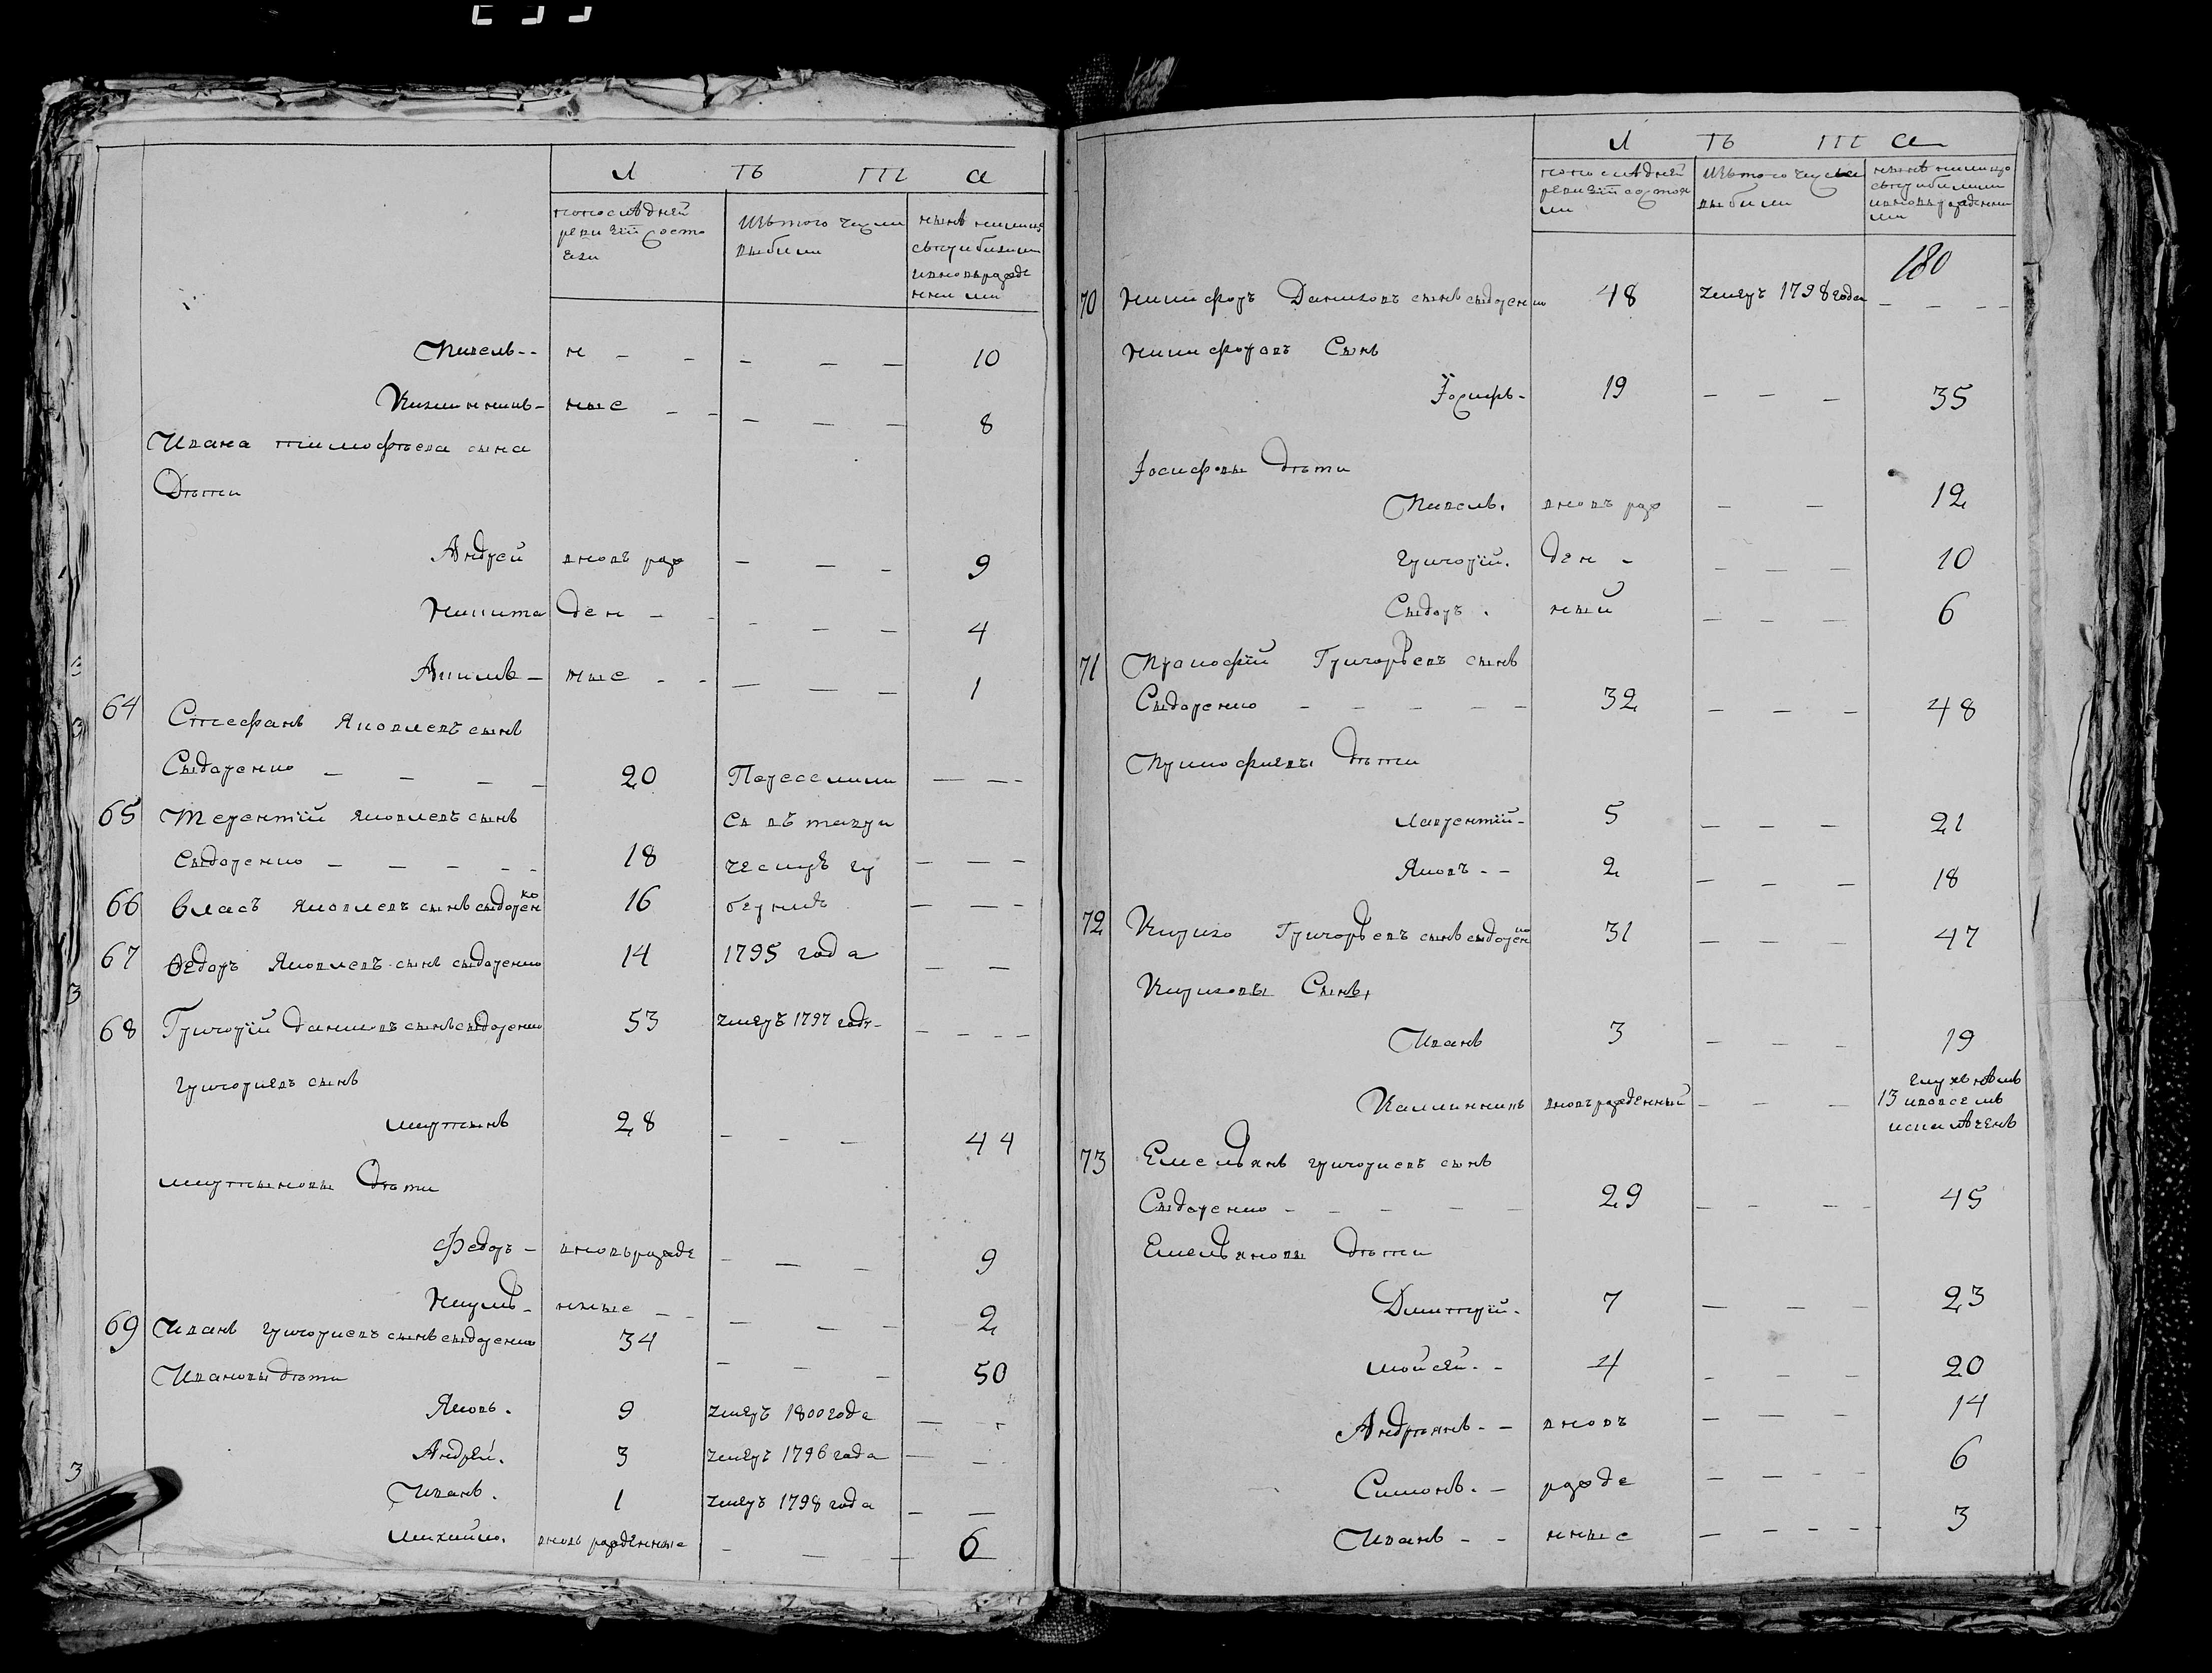 Л Ѣ Т А
по последней ревизiи состо яли
изъ того числа выбыли
нынѣ на лицо съ прибылыми и вновь рожде нными
Павелъ -- н - - - - - 10
Калинникъ - ные - - - - - 8
Ивана Тимофѣева сына
Дѣти
Андрей вновь рож - - - 9
Никита ден - - - - - 4
- ные - - - - - 1
64 Стефанъ Яковлевъ сынъ
Сыдоренко - - - - 20 Переселили - - -
65 Терентiй Яковлевъ сынъ ся въ таври
Сыдоренко - - - - - 18 ческую гу - - -
66 Власъ Яковлевъ сынъ сыдоренко 16 бернию - - -
67 Ѳедоръ Яковлевъ сынъ сыдоренко 14 1795 года - -
68 Григорiй Даниловъ сынъ сыдоренко 53 умеръ 1797 года - - - -
Григориевъ сынъ
мартынъ 28 - - - 44
мартыновы Дѣти
Федоръ - вновь рожде - - - 9
Наумъ - нные - - - - - 2
69 Иванъ григориевъ сынъ сыдоренко 34 - - - 50
Ивановы дѣти
Яковъ. 9 умеръ 1800 года - - -
Андрей. 3 умеръ 1796 года - - -
Иванъ. 1 умеръ 1798 года - -
михайло. вновь рожденные - - - 6
Л Ѣ Т А
по последней ревизiи состоя ли
изъ того числа выбыли
нынѣ на лицо съ прибылыми и вновь рожденны ми
180
70 Никифоръ Даниловъ сынъ сыдоренко 48 умеръ 1798 года - - -
Никифоровъ Сынъ
Iосифъ - 19 - - - 35
Iосифовы Дѣти
Павелъ. вновь рож - - 12
григорiй. ден - - - - 10
Сыдоръ. ный - - - 6
71 Прокофiй Григорьевъ сынъ
Сыдоренко - - - - - 32 - - - 48
Прокофиевы Дѣти
лаврентiй - 5 - - - 21
Яковъ - - 2 - - - 18
72 Кирило Григорьевъ сынъ сыдоренко 31 - - - 47
Кириловы Сынъ,
Иванъ 3 - - - 19
Калинникъ вновь рожденный - - - 13 глухъ нѣмъ и вовсемъ искалѣченъ
73 Емельянъ григориевъ сынъ
Сыдоренко - - - - - 29 - - - - 45
Емельяновы Дѣти
Дмитрiй. 7 - - - 23
мойсѣй - - 4 - - - 20
Андрѣянъ - - вновь - - - 14
Симонъ. - рожде - - - - 6
Иванъ - - нные - - - - - 3